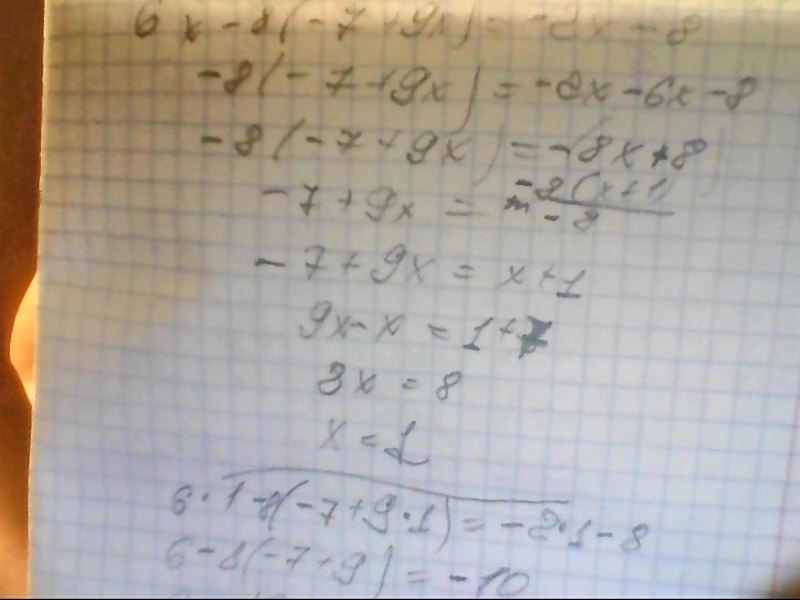 6x-8(-7+9x)=-2x-8
-8(-7+9x)=-2x-6x-8
-8(-7+9x)=-(8x+8
-7+9x = -8(x+1)/-8
-7+9x = x+1
9x-x = 1+7
8x = 8
x = 1
6·1-8(-7+9·1)=-2·1-8
6-8(-7+9)=-10